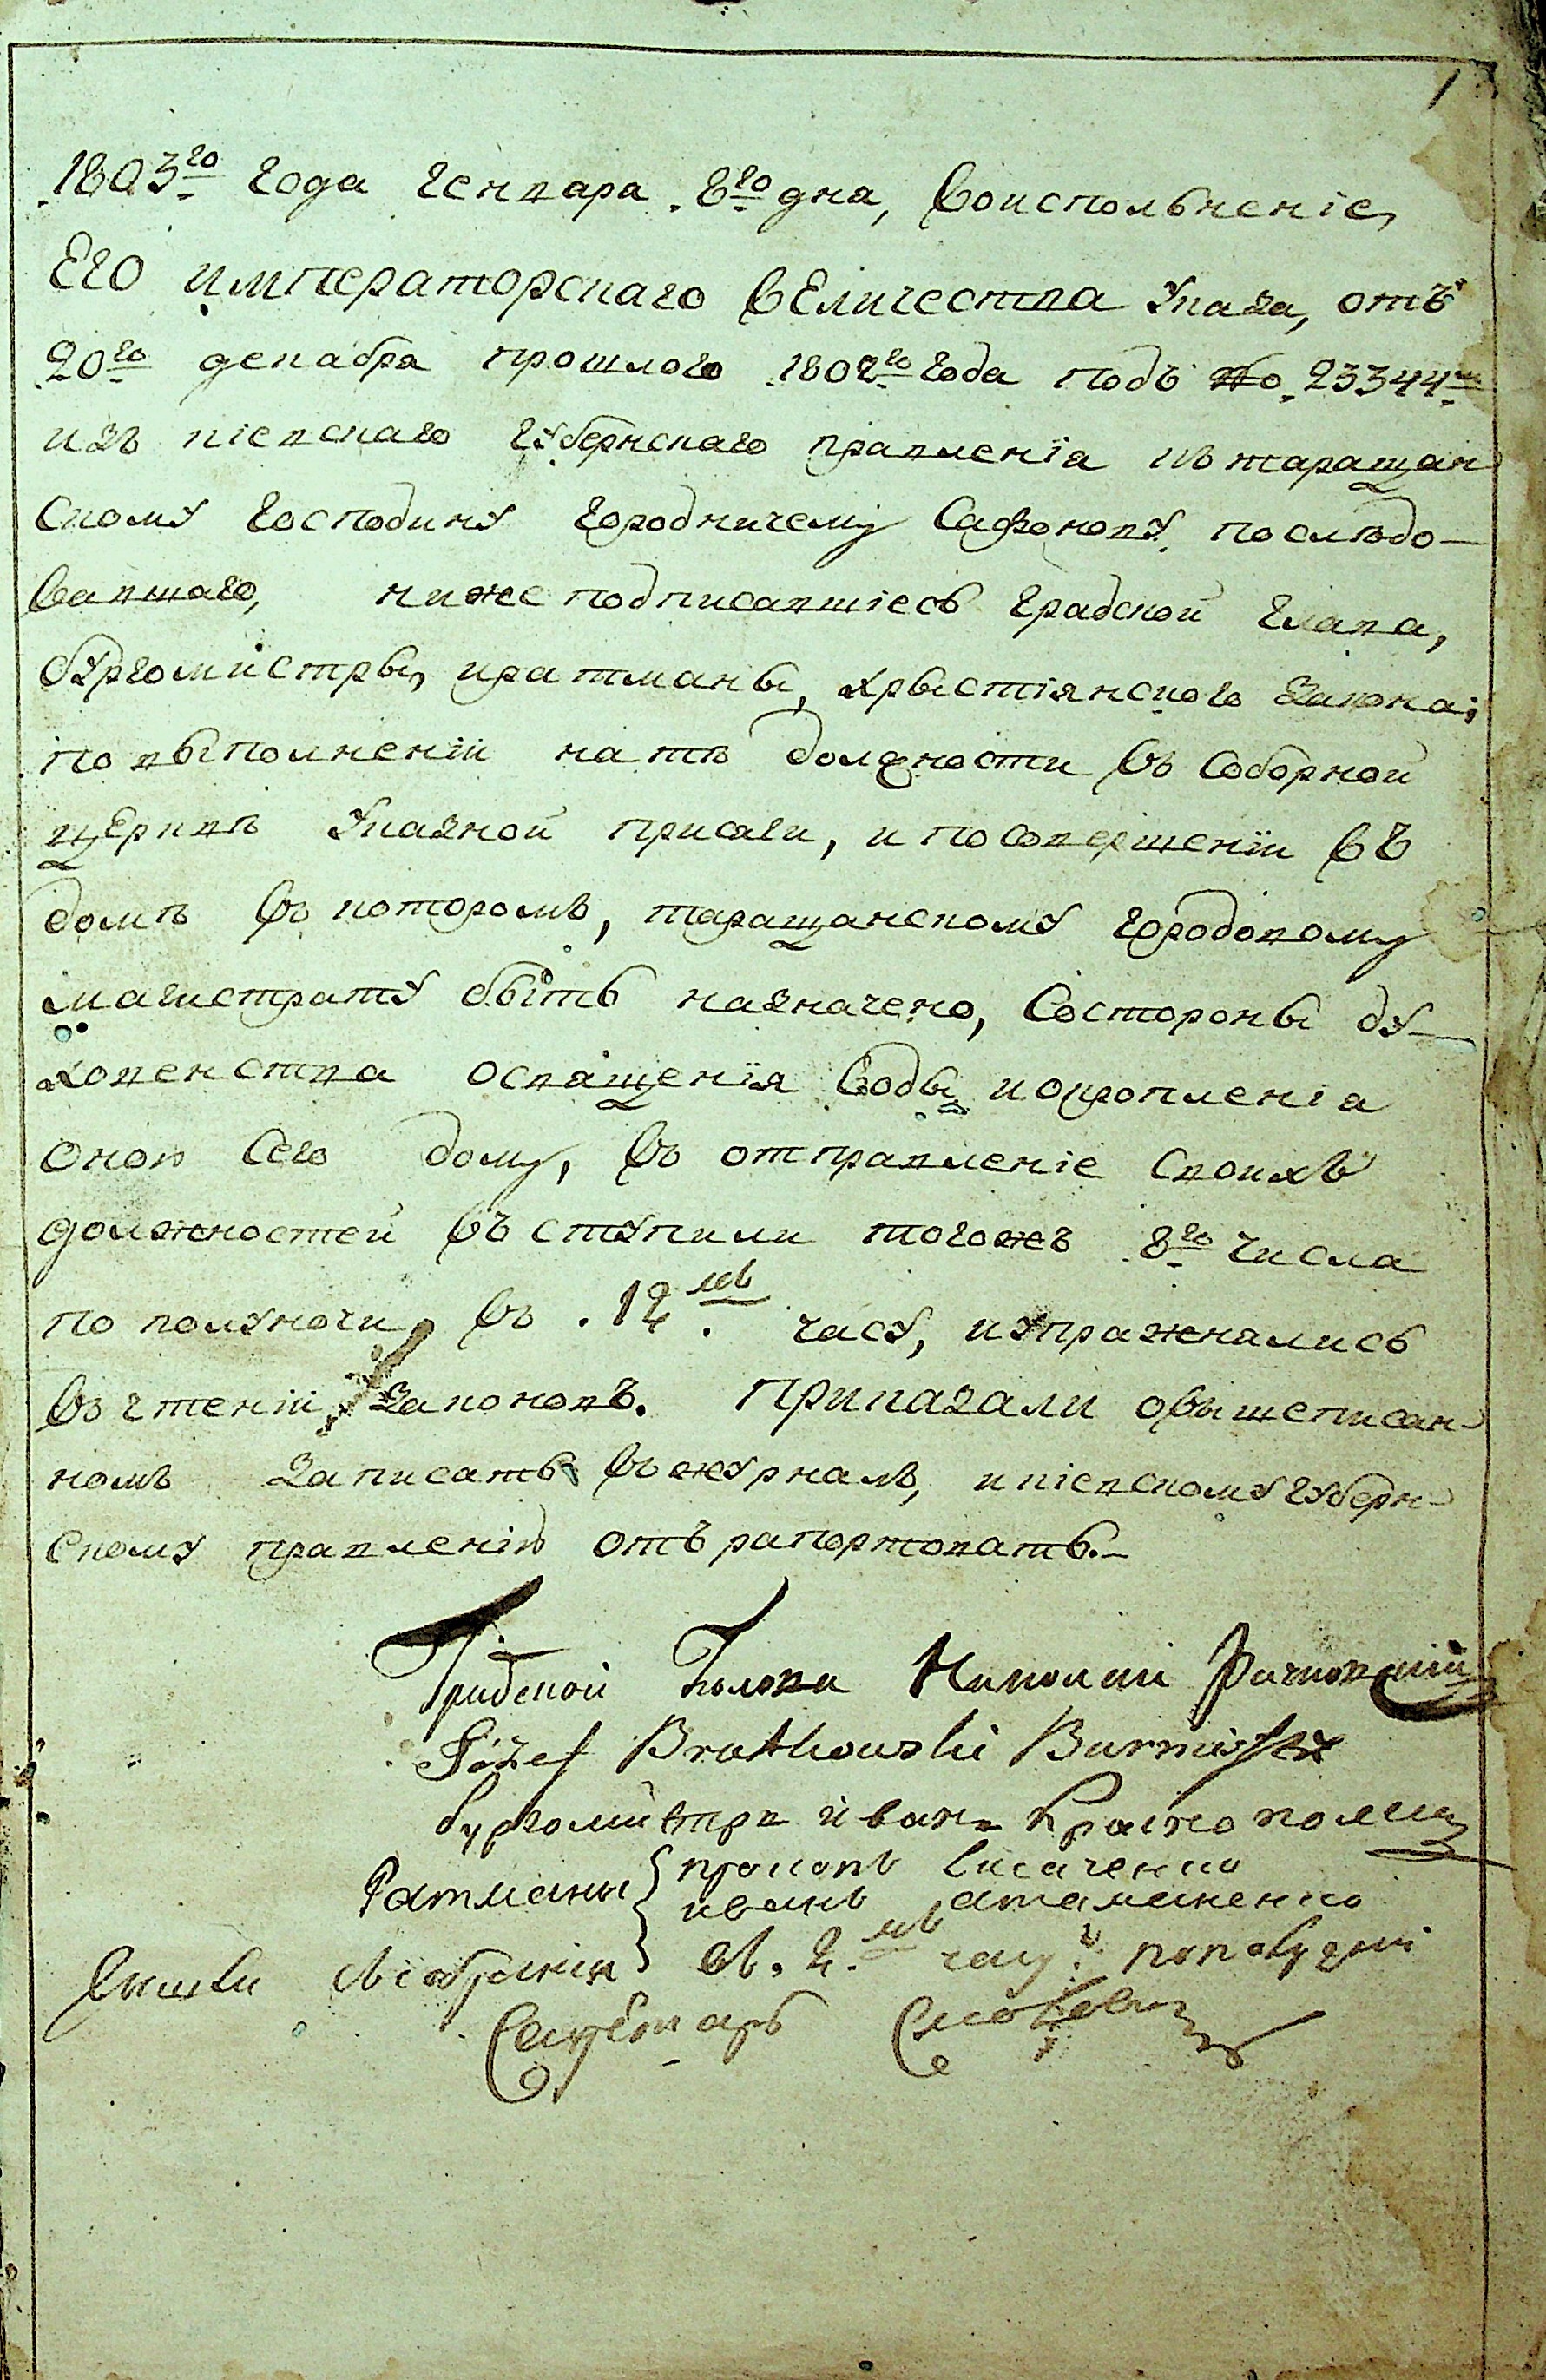 1
.1803го года генвара .8го дна, воиспольненіе,
Его императорскаго величества указа, отъ
.20го декабра прошлого .1802го года подъ No. 23344м
изъ кіевскаго губернскаго правленіа къ таращан
скому господину городничему Сафонову, последо-
вавшаго, ниже подписавшіесь градской глава,
бургомистры, иратманы, хрыстіянского закона;
по выполненіи на тѣ должности въ Соборной
церквѣ указной присяги, и по совершеніи въ
домѣ въ которомъ, таращанскому городовому
магистрату быть назначено, Состороны ду-
ховенства освященія воды, и окропленіа
оною Сего дому, въ отправленіе своихъ
должностей въступили тогожъ .8го числа
по полуночи, въ .12.мъ часу, иупражнялись
въ чтеніи законовъ. Приказали овышеписан-
номъ записать въ журналъ, и кіевскому губерн-
скому правленію отърапортовать.-
Градской Голова Николай Рачковскій
Józef Bratkowski Burmistrz
бургомистръ иванъ Краснополец
Ратманы { прокопъ Лисаченко
иванъ атаманенко
въ .2.мъ часу пополудни
Секретарь